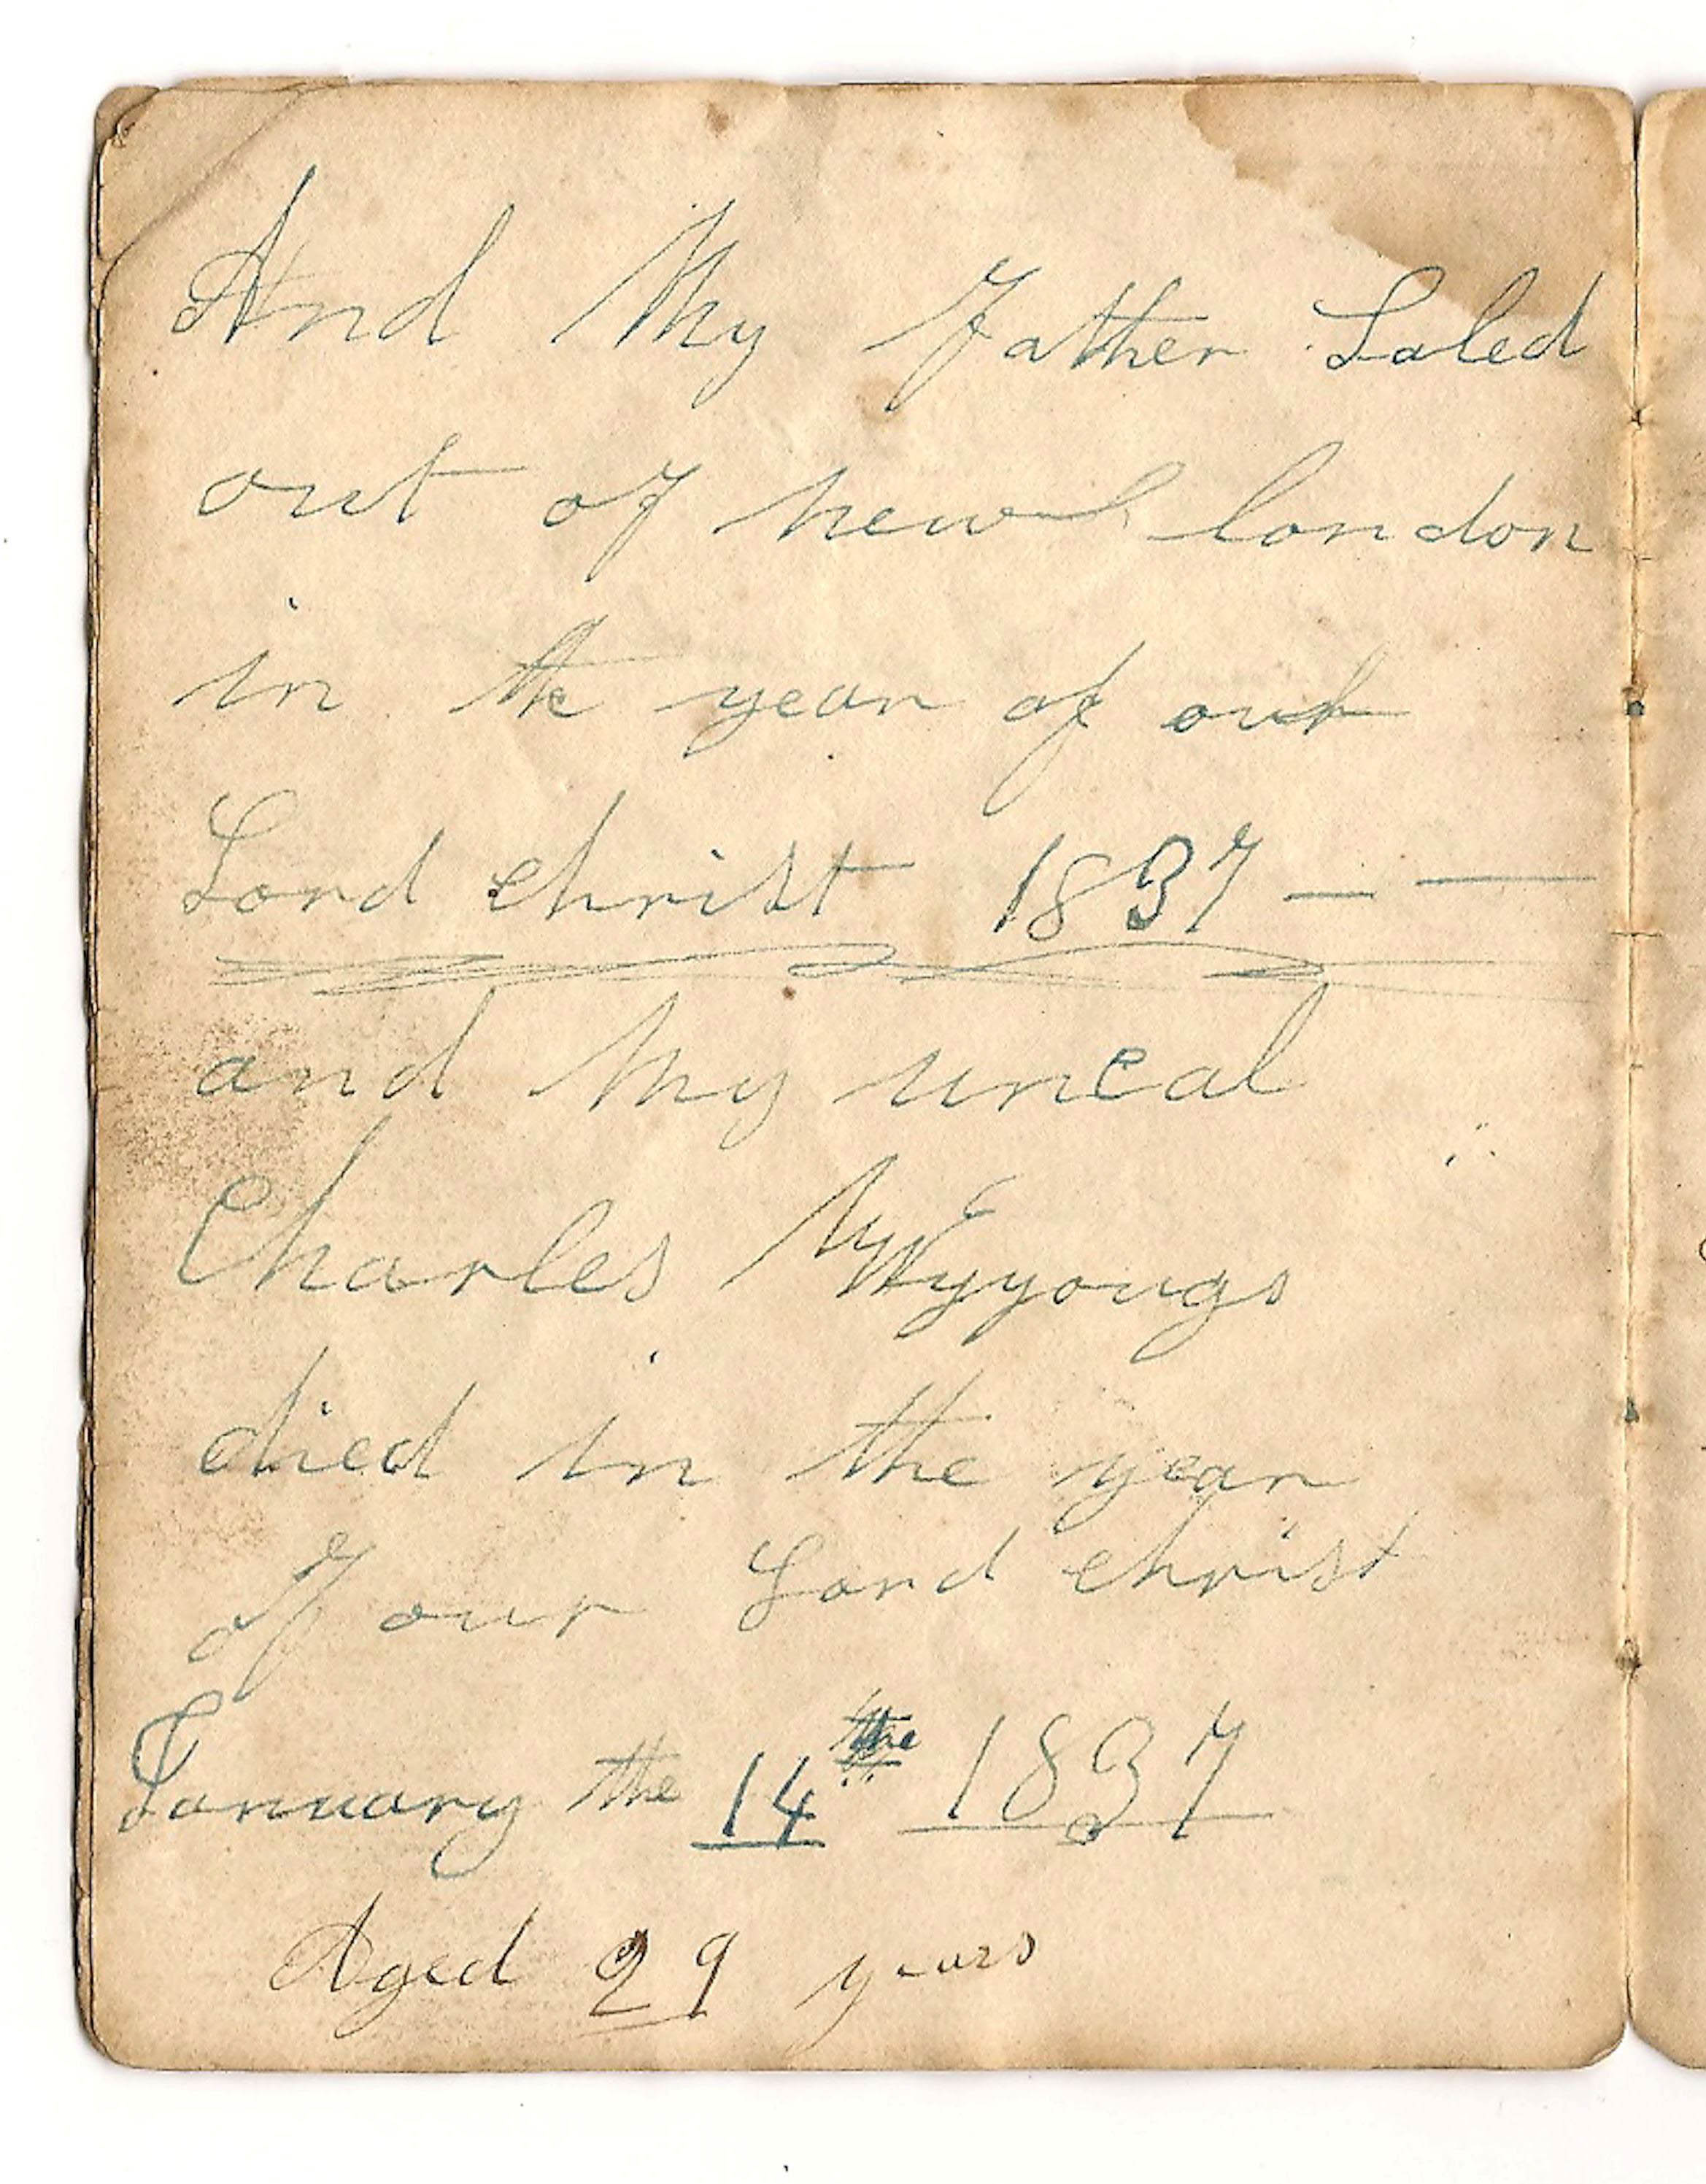 And My Father Saled
out of new london
in the year of our
Lord christ 1837 — —
and My uncal
Charles Wyyougs
died in the year
of our Lord christ
January the 14 the 1837
Aged 29 years